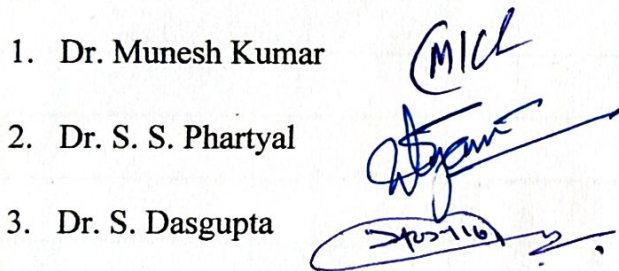 1. Dr. Munesh Kumar
2. Dr. S. S. Phartyal
3. Dr. S. Dasgupta